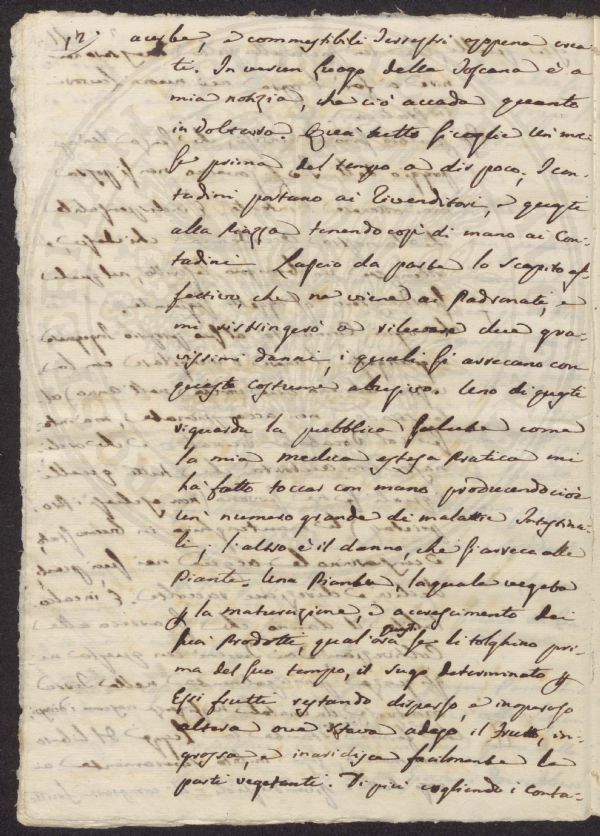 12. acerbe, e commestibili terrestri appena crea-
ti. In verun luogo della Toscana è a
mia notizia, che ciò accada quanto
in Volterra. Quà tutto si coglie un me-
se prima del tempo a dir poco; I con-
tadini portano ai Rivenditori, e questi
alla Piazza tenendo così di mano ai Con-
tadini. Lascio da parte lo scapito ef-
fettivo, che ne viene ai Padronati, e
mi ristringerò a rilevare due gra-
vissimi danni, i quali si arrecano con
questo costume abusivo. Uno di questi
riguarda la pubblica salute come
la mia medica estesa Pratica mi
hà fatto toccar con mano producendo ciò
un' numero grande di malattie Intestina-
li; l'altro è il danno, che si arreca alle
Piante. Una Pianta, la quale vegeta
p la maturazione, e accrescimento dei
suoi Prodotti, qual'ora questi se li tolghino pri-
ma del suo tempo, il sugo determinato p
Essi frutti restando disperso, e inoperoso
altera ove stava adeso il Frutto, in-
grossa, e inaridisce facilmente le
parti vegetanti. Di più cogliendo i Conta-